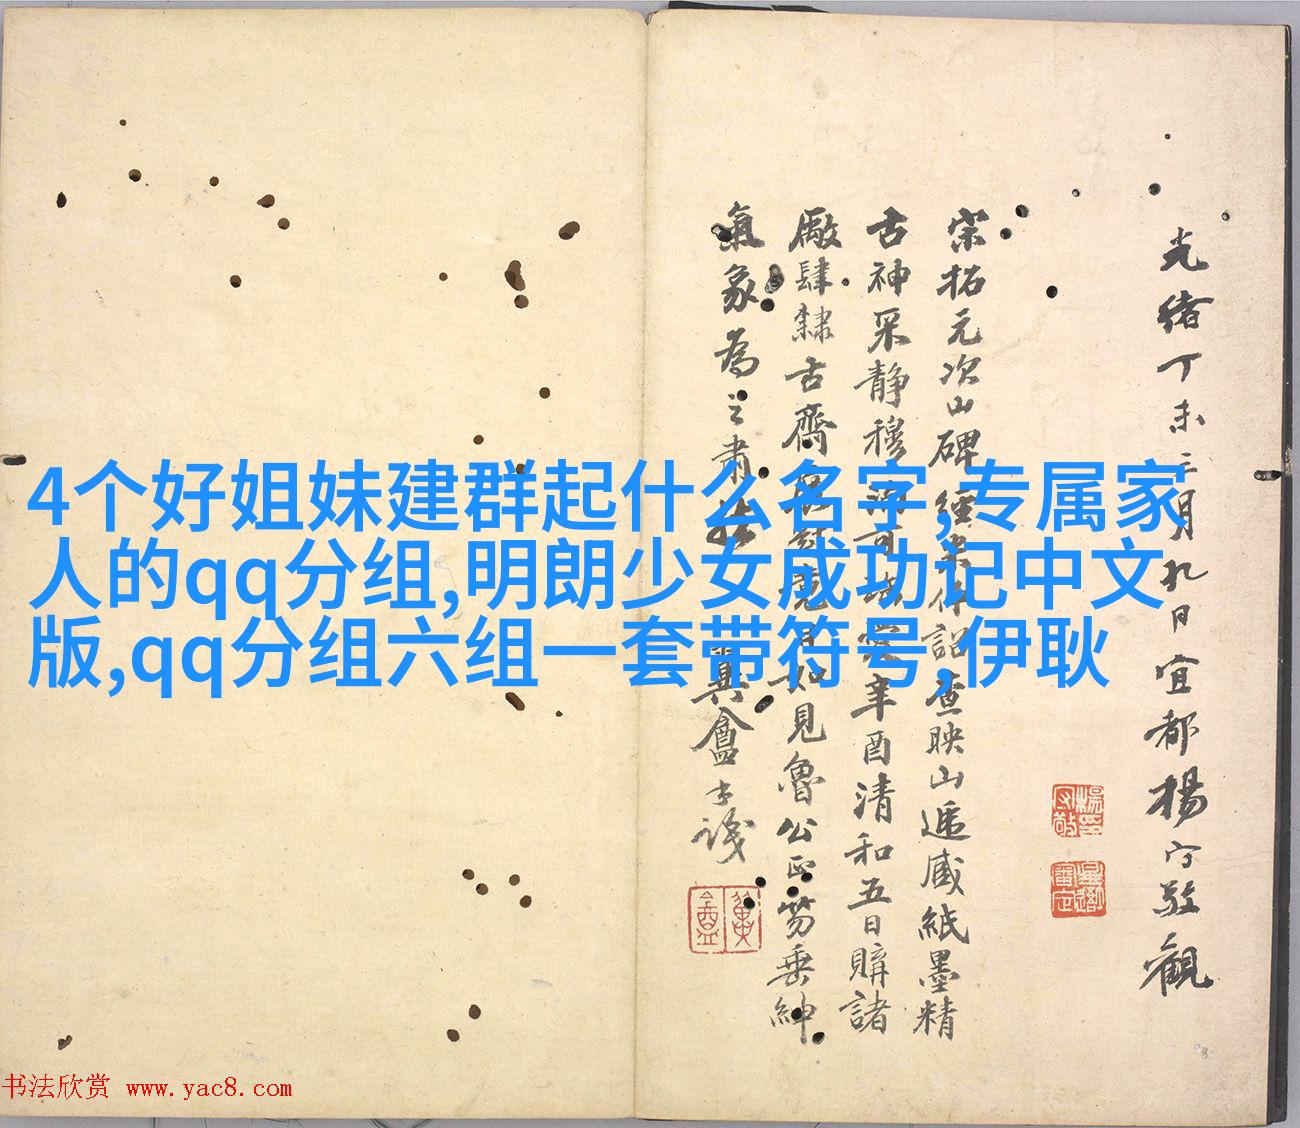 4个好姐妹建群起什么名字,专属家
人的qq分组,明朗少女成功记中文
版,qq分组六组一套带符号,伊耿
光緒丁未二月九日宜都楊守敬觀
宗拓元次山碑 經 查映山遞臧紙墨精
古神采静穆 辛酉清和五日購諸
廠肆隸古齋 如見魯公正笏垂紳
氣象為之肅 翼盦 識
書法欣赏 www.yac8.com